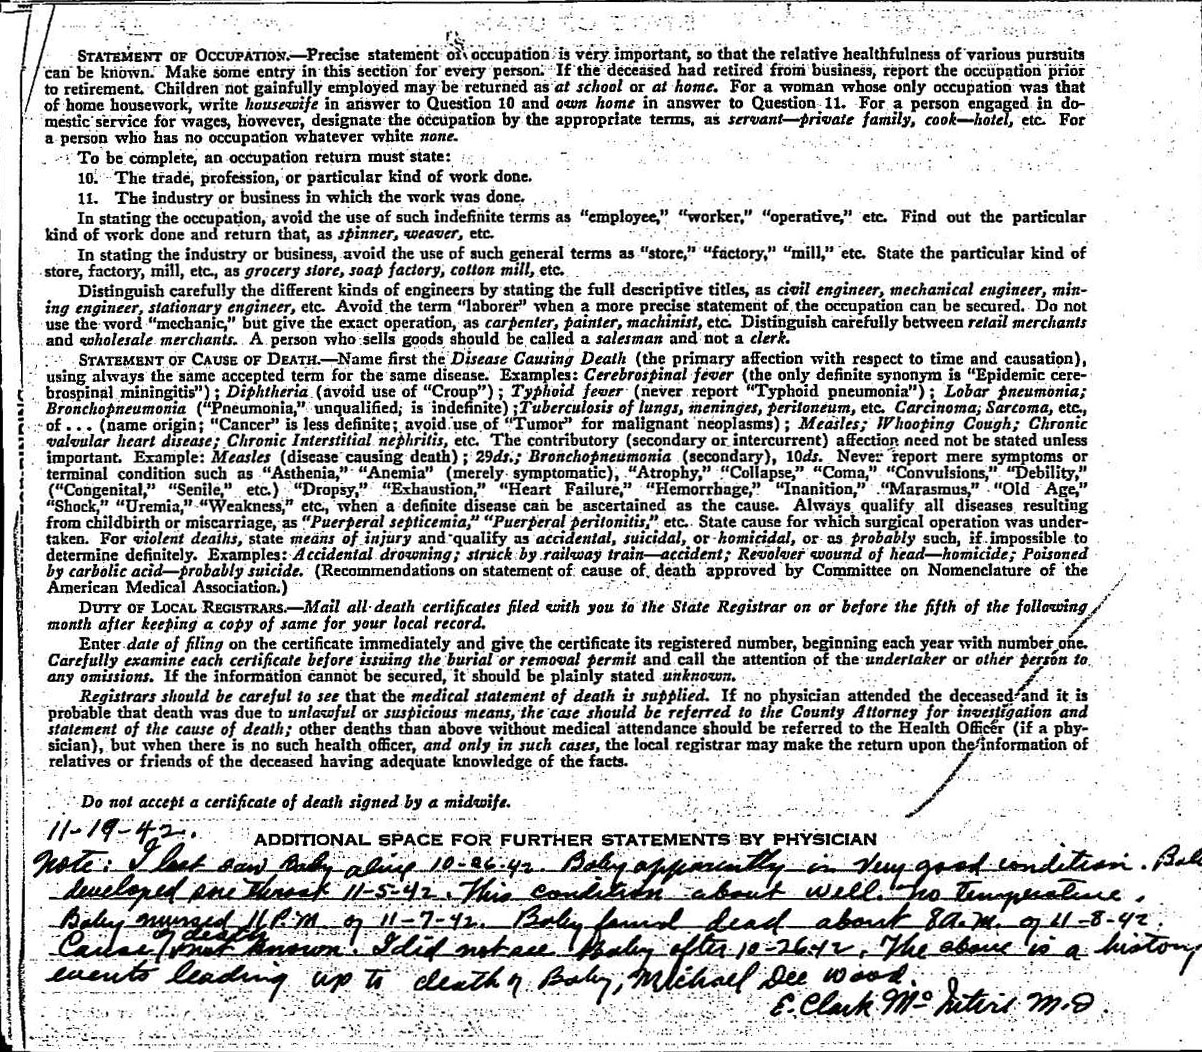 STATEMENT OF OCCUPATION.—Precise statement of occupation is very important, so that the relative healthfulness of various pursuits
can be known. Make some entry in this section for every person. If the deceased had retired from business, report the occupation prior
to retirement. Children not gainfully employed may be returned as at school or at home. For a woman whose only occupation was that
of home housework, write housewife in answer to Question 10 and own home in answer to Question 11. For a person engaged in do-
mestic service for wages, however, designate the occupation by the appropriate terms, as servant—private family, cook—hotel, etc. For
a person who has no occupation whatever white none.
To be complete, an occupation return must state:
10. The trade, profession, or particular kind of work done.
11. The industry or business in which the work was done.
In stating the occupation, avoid the use of such indefinite terms as "employee," "worker," "operative," etc. Find out the particular
kind of work done and return that, as spinner, weaver, etc.
In stating the industry or business, avoid the use of such general terms as "store," "factory," "mill," etc. State the particular kind of
store, factory, mill, etc., as grocery store, soap factory, cotton mill, etc.
Distinguish carefully the different kinds of engineers by stating the full descriptive titles, as civil engineer, mechanical engineer, min-
ing engineer, stationary engineer, etc. Avoid the term "laborer" when a more precise statement of the occupation can be secured. Do not
use the word "mechanic," but give the exact operation, as carpenter, painter, machinist, etc. Distinguish carefully between retail merchants
and wholesale merchants. A person who sells goods should be called a salesman and not a clerk.
STATEMENT OF CAUSE OF DEATH.—Name first the Disease Causing Death (the primary affection with respect to time and causation),
using always the same accepted term for the same disease. Examples: Cerebrospinal fever (the only definite synonym is "Epidemic cere-
brospinal miningitis"); Diphtheria (avoid use of "Croup"); Typhoid fever (never report "Typhoid pneumonia"); Lobar pneumonia;
Bronchopneumonia ("Pneumonia," unqualified, is indefinite); Tuberculosis of lungs, meninges, peritoneum, etc. Carcinoma, Sarcoma, etc.,
of ... (name origin; "Cancer" is less definite; avoid use of "Tumor" for malignant neoplasms); Measles; Whooping Cough; Chronic
valvular heart disease; Chronic Interstitial nephritis, etc. The contributory (secondary or intercurrent) affection need not be stated unless
important. Example: Measles (disease causing death); 29ds.; Bronchopneumonia (secondary), 10ds. Never report mere symptoms or
terminal condition such as "Asthenia," "Anemia" (merely symptomatic), "Atrophy," "Collapse," "Coma," "Convulsions," "Debility,"
("Congenital," "Senile," etc.) "Dropsy," "Exhaustion," "Heart Failure," "Hemorrhage," "Inanition," "Marasmus," "Old Age,"
"Shock," "Uremia," "Weakness," etc., when a definite disease can be ascertained as the cause. Always qualify all diseases resulting
from childbirth or miscarriage, as "Puerperal septicemia," "Puerperal peritonitis," etc. State cause for which surgical operation was under-
taken. For violent deaths, state means of injury and qualify as accidental, suicidal, or homicidal, or as probably such, if impossible to
determine definitely. Examples: Accidental drowning; struck by railway train—accident; Revolver wound of head—homicide; Poisoned
by carbolic acid—probably suicide. (Recommendations on statement of cause of death approved by Committee on Nomenclature of the
American Medical Association.)
DUTY OF LOCAL REGISTRARS.—Mail all death certificates filed with you to the State Registrar on or before the fifth of the following
month after keeping a copy of same for your local record.
Enter date of filing on the certificate immediately and give the certificate its registered number, beginning each year with number one.
Carefully examine each certificate before issuing the burial or removal permit and call the attention of the undertaker or other person to
any omissions. If the information cannot be secured, it should be plainly stated unknown.
Registrars should be careful to see that the medical statement of death is supplied. If no physician attended the deceased and it is
probable that death was due to unlawful or suspicious means, the case should be referred to the County Attorney for investigation and
statement of the cause of death; other deaths than above without medical attendance should be referred to the Health Officer (if a phy-
sician), but when there is no such health officer, and only in such cases, the local registrar may make the return upon the information of
relatives or friends of the deceased having adequate knowledge of the facts.
Do not accept a certificate of death signed by a midwife.
11-19-42.
ADDITIONAL SPACE FOR FURTHER STATEMENTS BY PHYSICIAN
Note: I last saw Baby alive 10-26-42. Baby apparently in very good condition. Baby
developed sore throat 11-5-42. This condition about well. no temperature.
Baby nursed 11 P.M. of 11-7-42. Baby found dead about 8 A.M. of 11-8-42.
Cause of death not known. I did not see Baby after 10-26-42. The above is a history
events leading up to death of Baby, Michael Dee Wood.
E. Clark M.D.